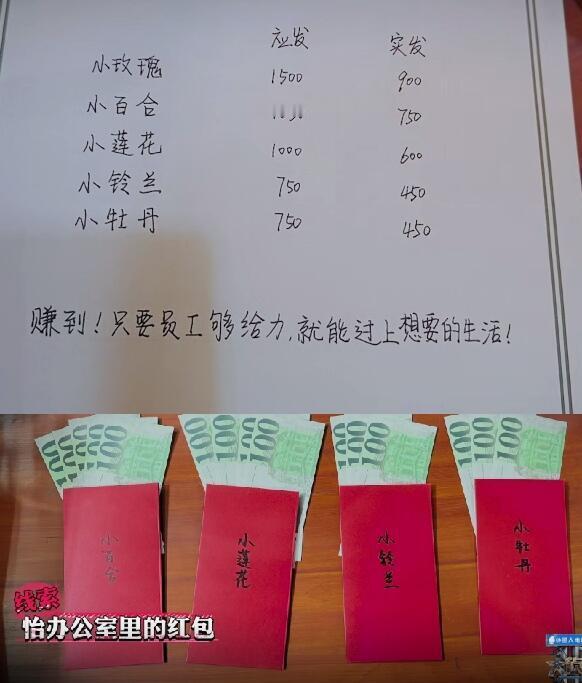 应发 实发
小玫瑰 1500 900
小百合 750
小莲花 1000 600
小铃兰 750 450
小牡丹 750 450
赚到！只要员工够给力，就能过上想要的生活！
100 100 100 100 100 100
小百合 小莲花 小铃兰 小牡丹
线索
怡办公室里的红包